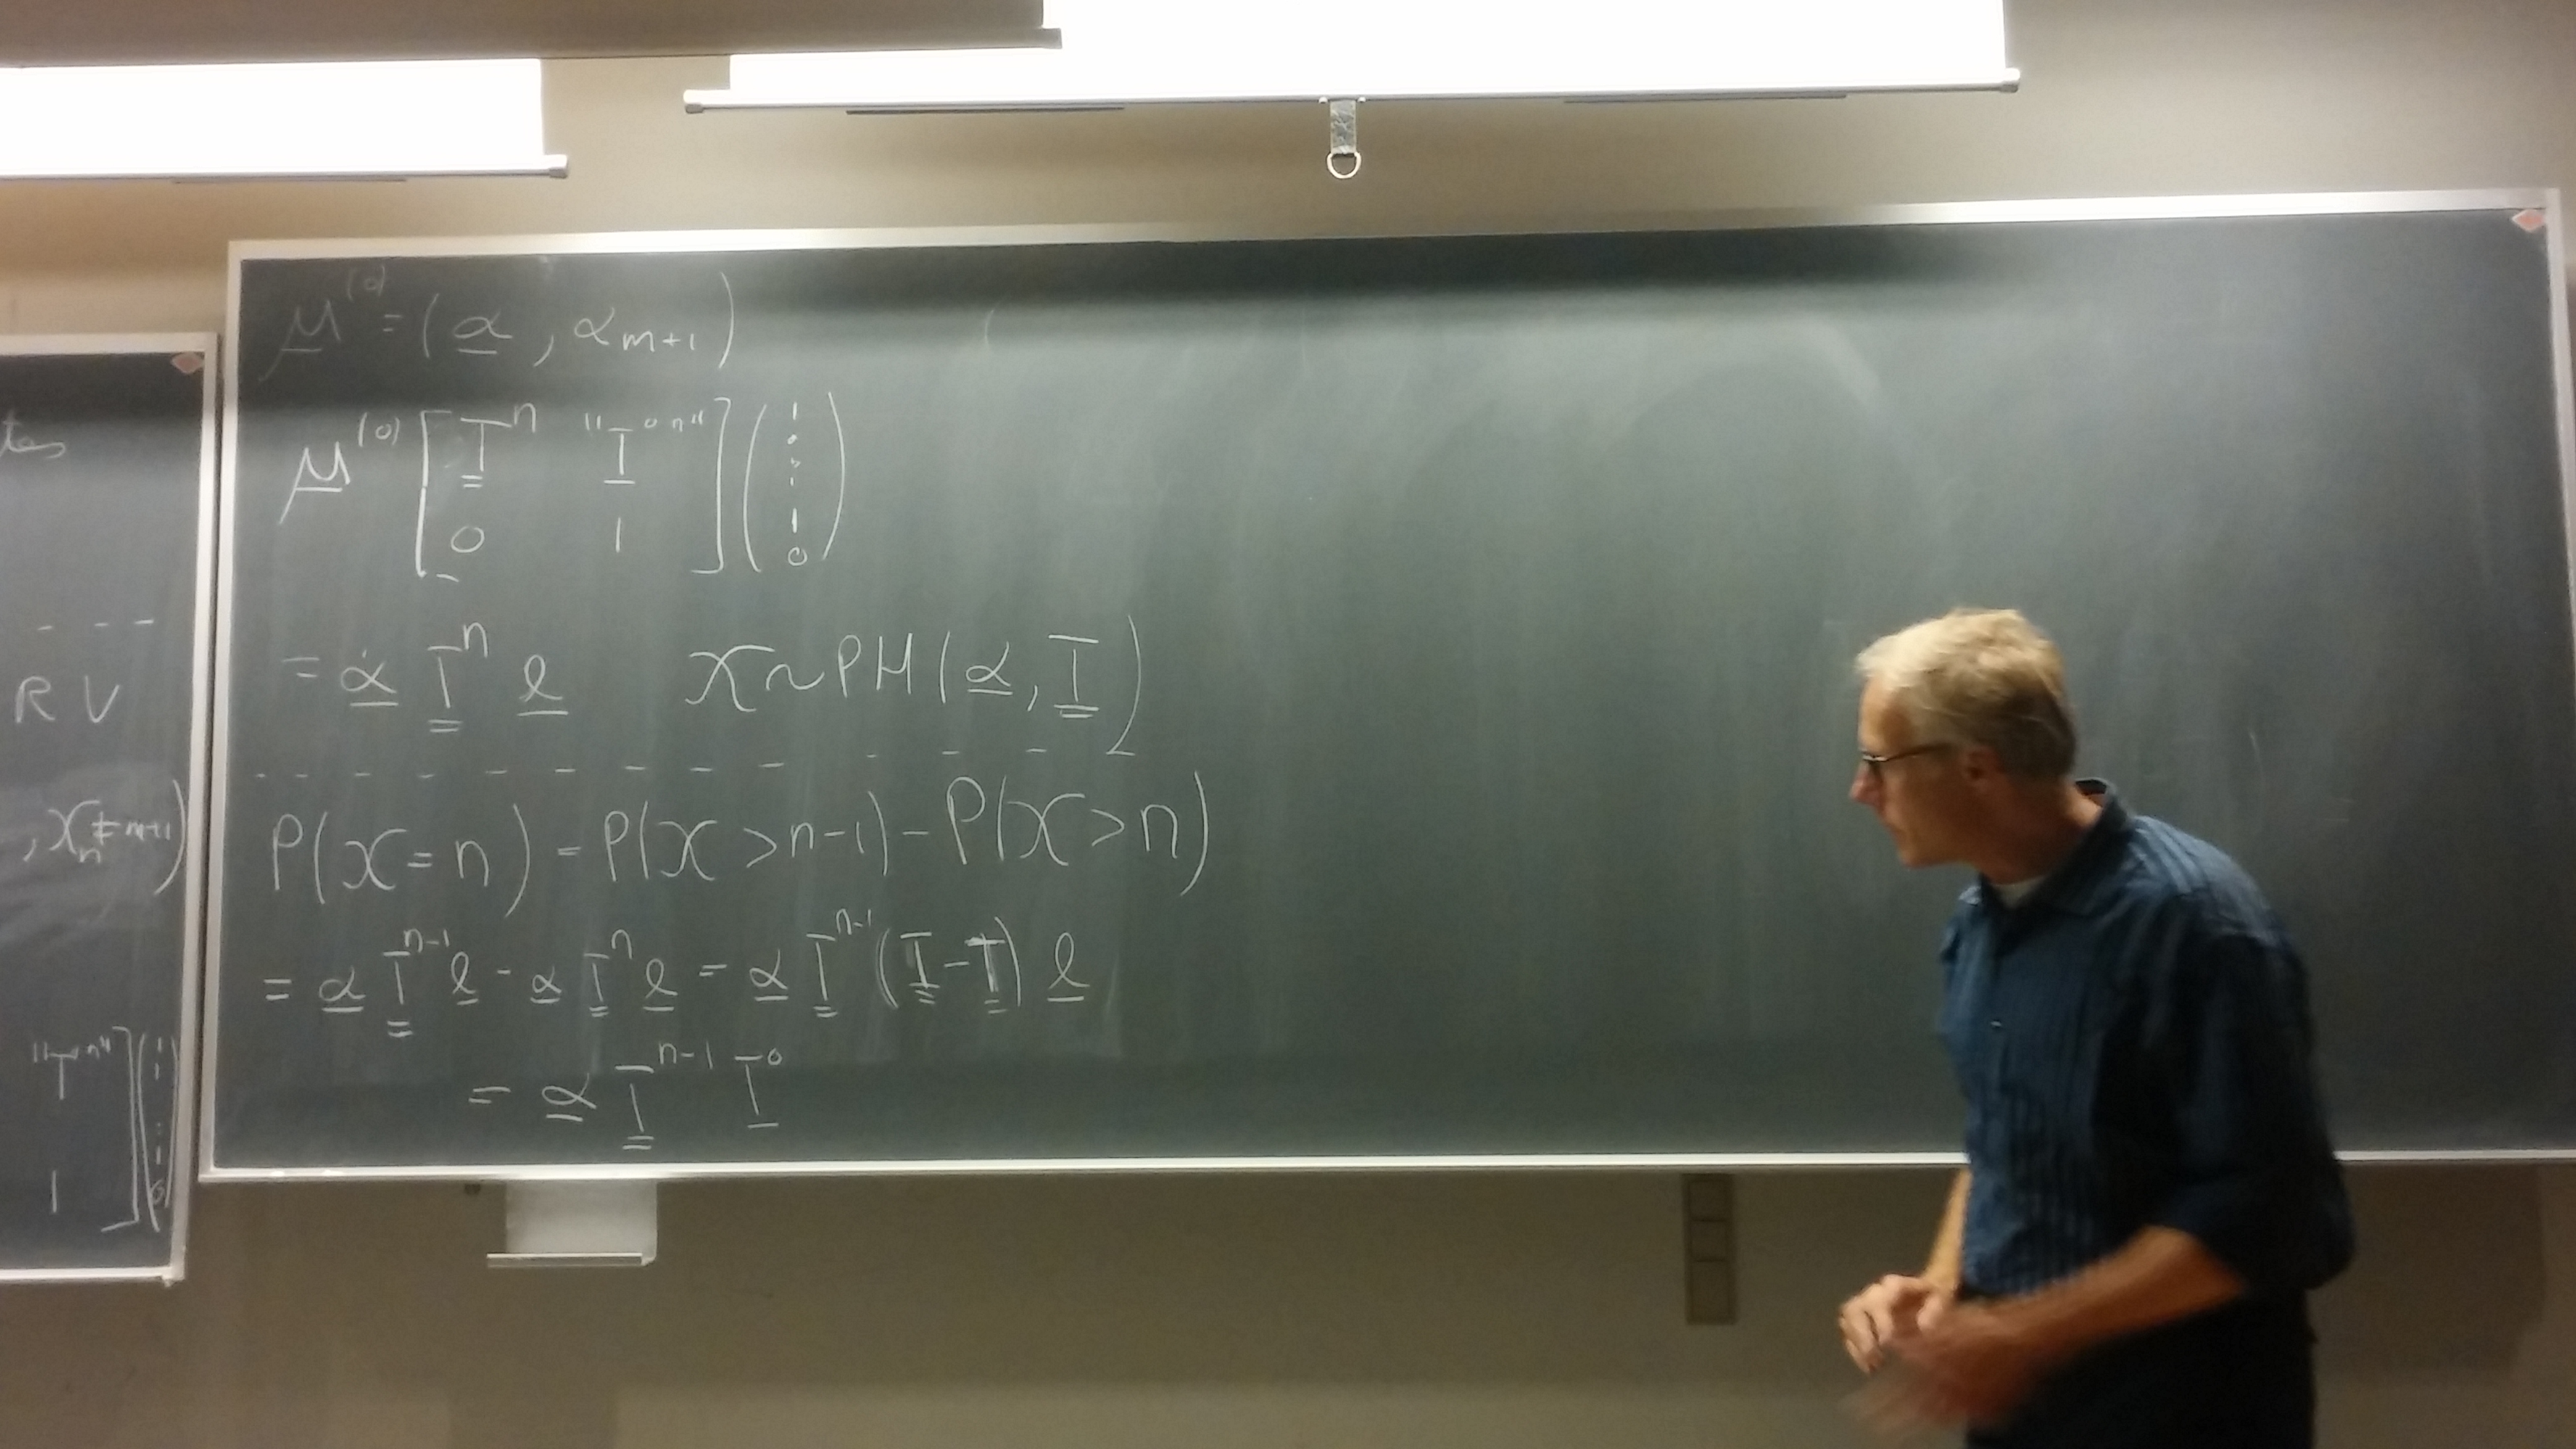 tes
R V
, X_n ≠ m+1)
"T° n"] (1 1 ⋮ 1 0)
1
μ^(0) = (α, α_{m+1})
μ^(0) [T^n "T^{0 n}" ; 0 1] (1 ⋮ 1 0)
= α T^n e X ~ PH(α, T)
P(X = n) = P(X > n-1) - P(X > n)
= α T^{n-1} e - α T^n e = α T^{n-1} (I - T) e
= α T^{n-1} T^0